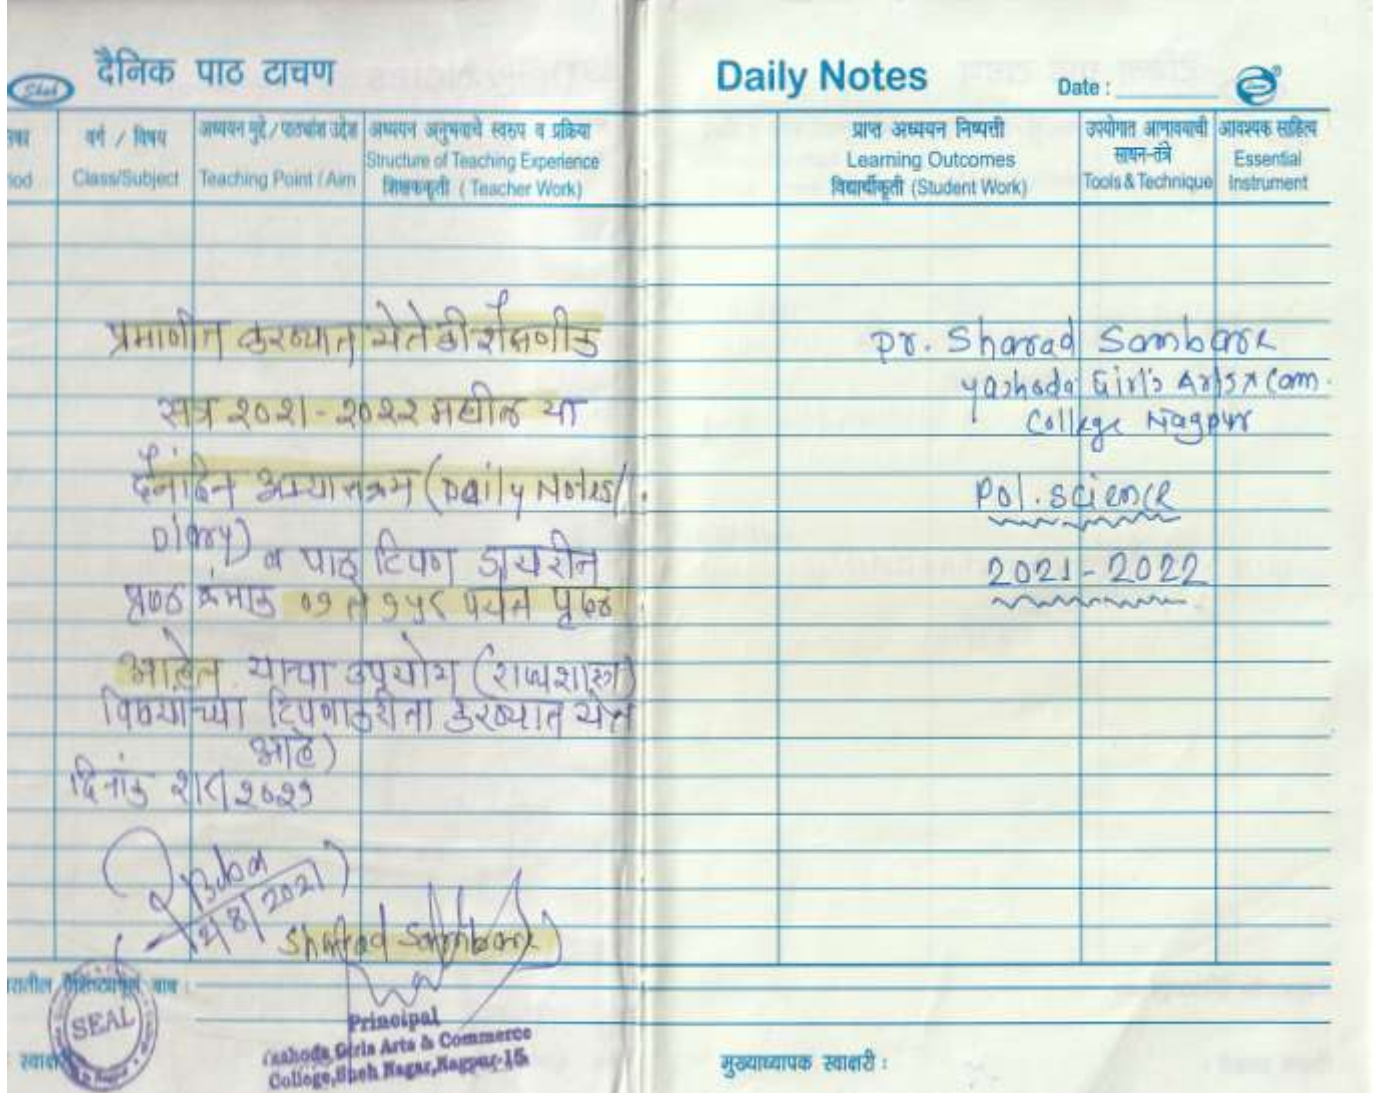 दैनिक पाठ टाचण
वर्ग / विषय
Class/Subject
अध्ययन मुद्दे / पाठ्यांश उद्देश
Teaching Point / Aim
अध्ययन अनुभवाचे स्वरुप व प्रक्रिया
Structure of Teaching Experience
शिक्षककृती ( Teacher Work)
प्रमाणीत करण्यात येते की शैक्षणीक
सत्र २०२१-२०२२ मधील या
दैनांदिन अभ्यासक्रम (Daily Notes/
Diary) व पाठ टिपण डायरीत
पृष्ठ क्रमांक ०१ ते १५८ पर्यंत पृष्ठ
आहेत याचा उपयोग (राज्यशास्त्र)
विषयाच्या टिपणाकरीता करण्यात येत
आहे)
दिनांक २/८/२०२१
2/8/2021
Sharad Sambare
SEAL
Principal
Yashoda Girls Arts & Commerce
College, Sneh Nagar, Nagpur-15
Daily Notes
Date :
प्राप्त अध्ययन निष्पत्ती
Learning Outcomes
विद्यार्थीकृती (Student Work)
उपयोगात आणावयाची
साधन-तंत्रे
Tools & Technique
आवश्यक साहित्य
Essential
Instrument
Dr. Sharad Sambare
Yashoda Girl's Arts & Com.
College Nagpur
Pol. Science
2021-2022
मुख्याध्यापक स्वाक्षरी :